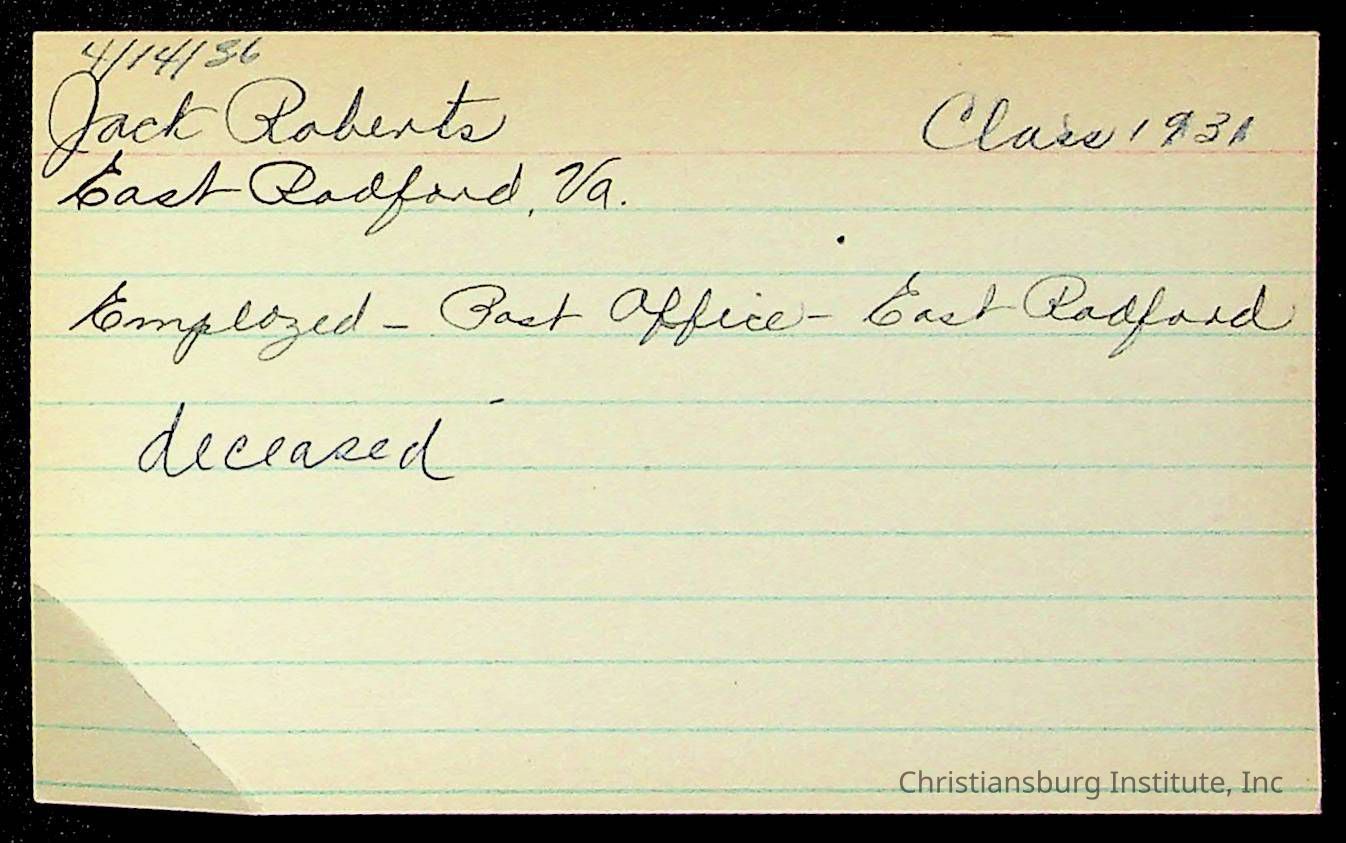 4/14/36
Jack Roberts Class 1931
East Radford, Va.
Employed - Post Office - East Radford
deceased
Christiansburg Institute, Inc